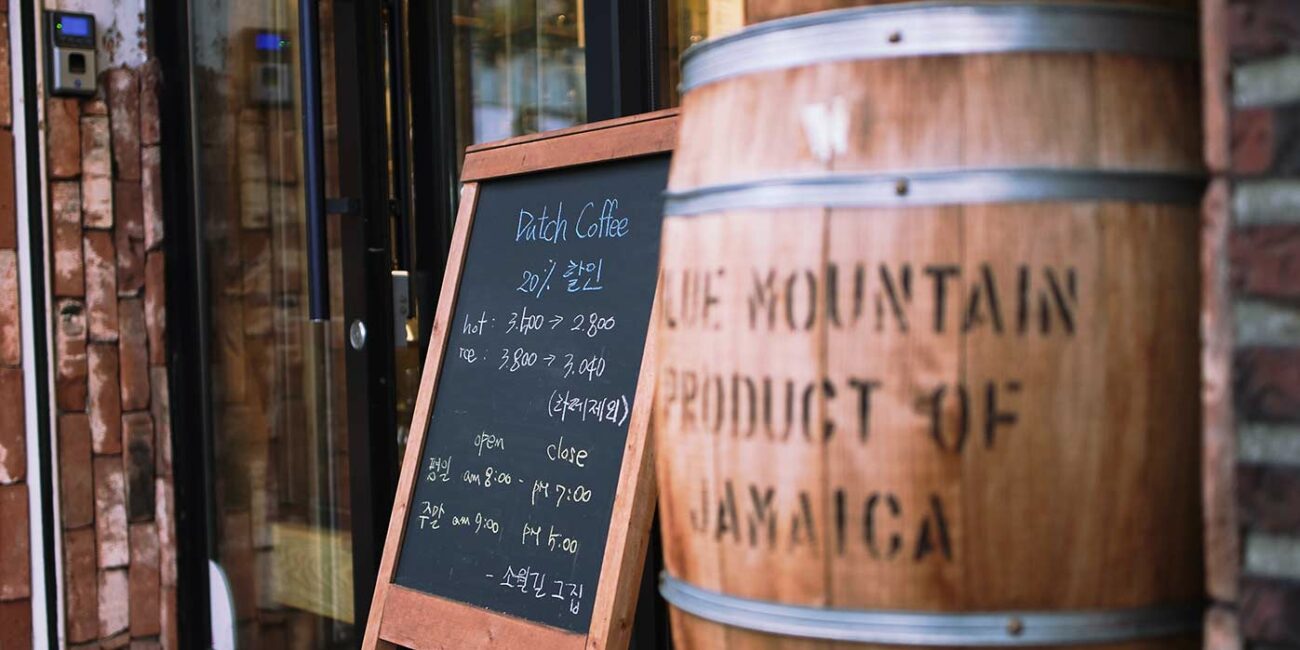 Dutch Coffee
20% 할인
hot : 3.500 → 2.800
ice : 3.800 → 3.040
(라떼제외)
open close
평일 am 8:00 - pm 7:00
주말 am 9:00 pm 5:00
- 소월길 그집
LUE MOUNTAIN
PRODUCT OF
JAMAICA